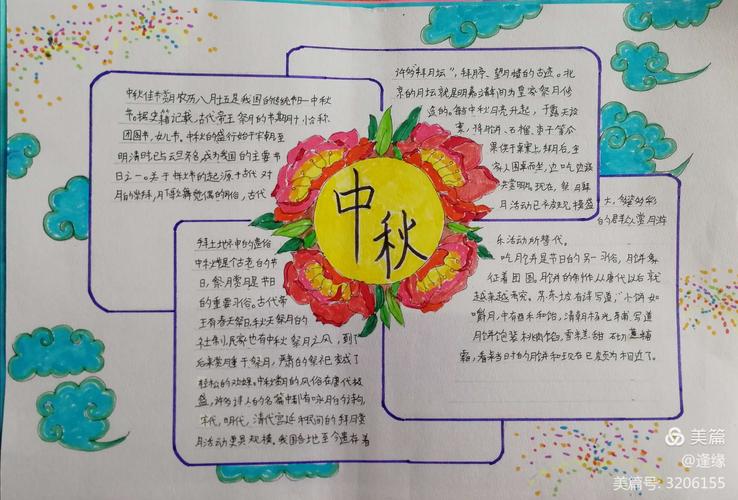 中秋佳节
农历八月十五是我国的传统节一中秋
节。据史籍记载,古代帝王祭月的节期
团圆节,女儿节。中秋的盛行始于宋朝至
明清时已与元旦齐名,成为我国的主要节
日之一。关于
月的崇拜,月下歌舞觅偶的习俗,古代
拜土地神中的遗俗
中秋增是个古老的节
日,祭月赏月是节日
的重要习俗。古代帝
王有春天祭日,秋天祭月的
社制,民家也有中秋祭月之风,到了
后来赏月重于祭月,严肃的祭祀变成了
轻松的欢娱。中秋赏月的风俗在唐代极
盛,许多诗人的名篇中都有咏月的诗句,
宋代,明代,清代宫廷和民间的拜月赏
月活动更具规模。我国各地至今遗存着
许多“拜月坛”,拜月亭、望月楼的古迹。北
京的月坛就是明嘉靖年间为皇家祭月修
造的。每当中秋月亮升起,于露天设
案,将月饼、石榴、枣子等瓜
果供于桌案上,拜月后,全
家人围桌而坐,边吃边谈
共赏明月。现在,祭月拜
月活动已
大,多彩
的群众赏月游
乐活动所替代。
吃月饼是节日的另一习俗,月饼象
征着团圆。月饼的制作从唐代以后就
越来越考究。苏东坡有诗写道:“小饼如
嚼月,中有酥和饴,清朝杨光辅写道
月饼饱装桃肉馅,雪糕甜砌蔗糖
霜,看来当时的月饼和现在已颇为相近了。
中
秋
美篇
@逢缘
美篇号: 3206155